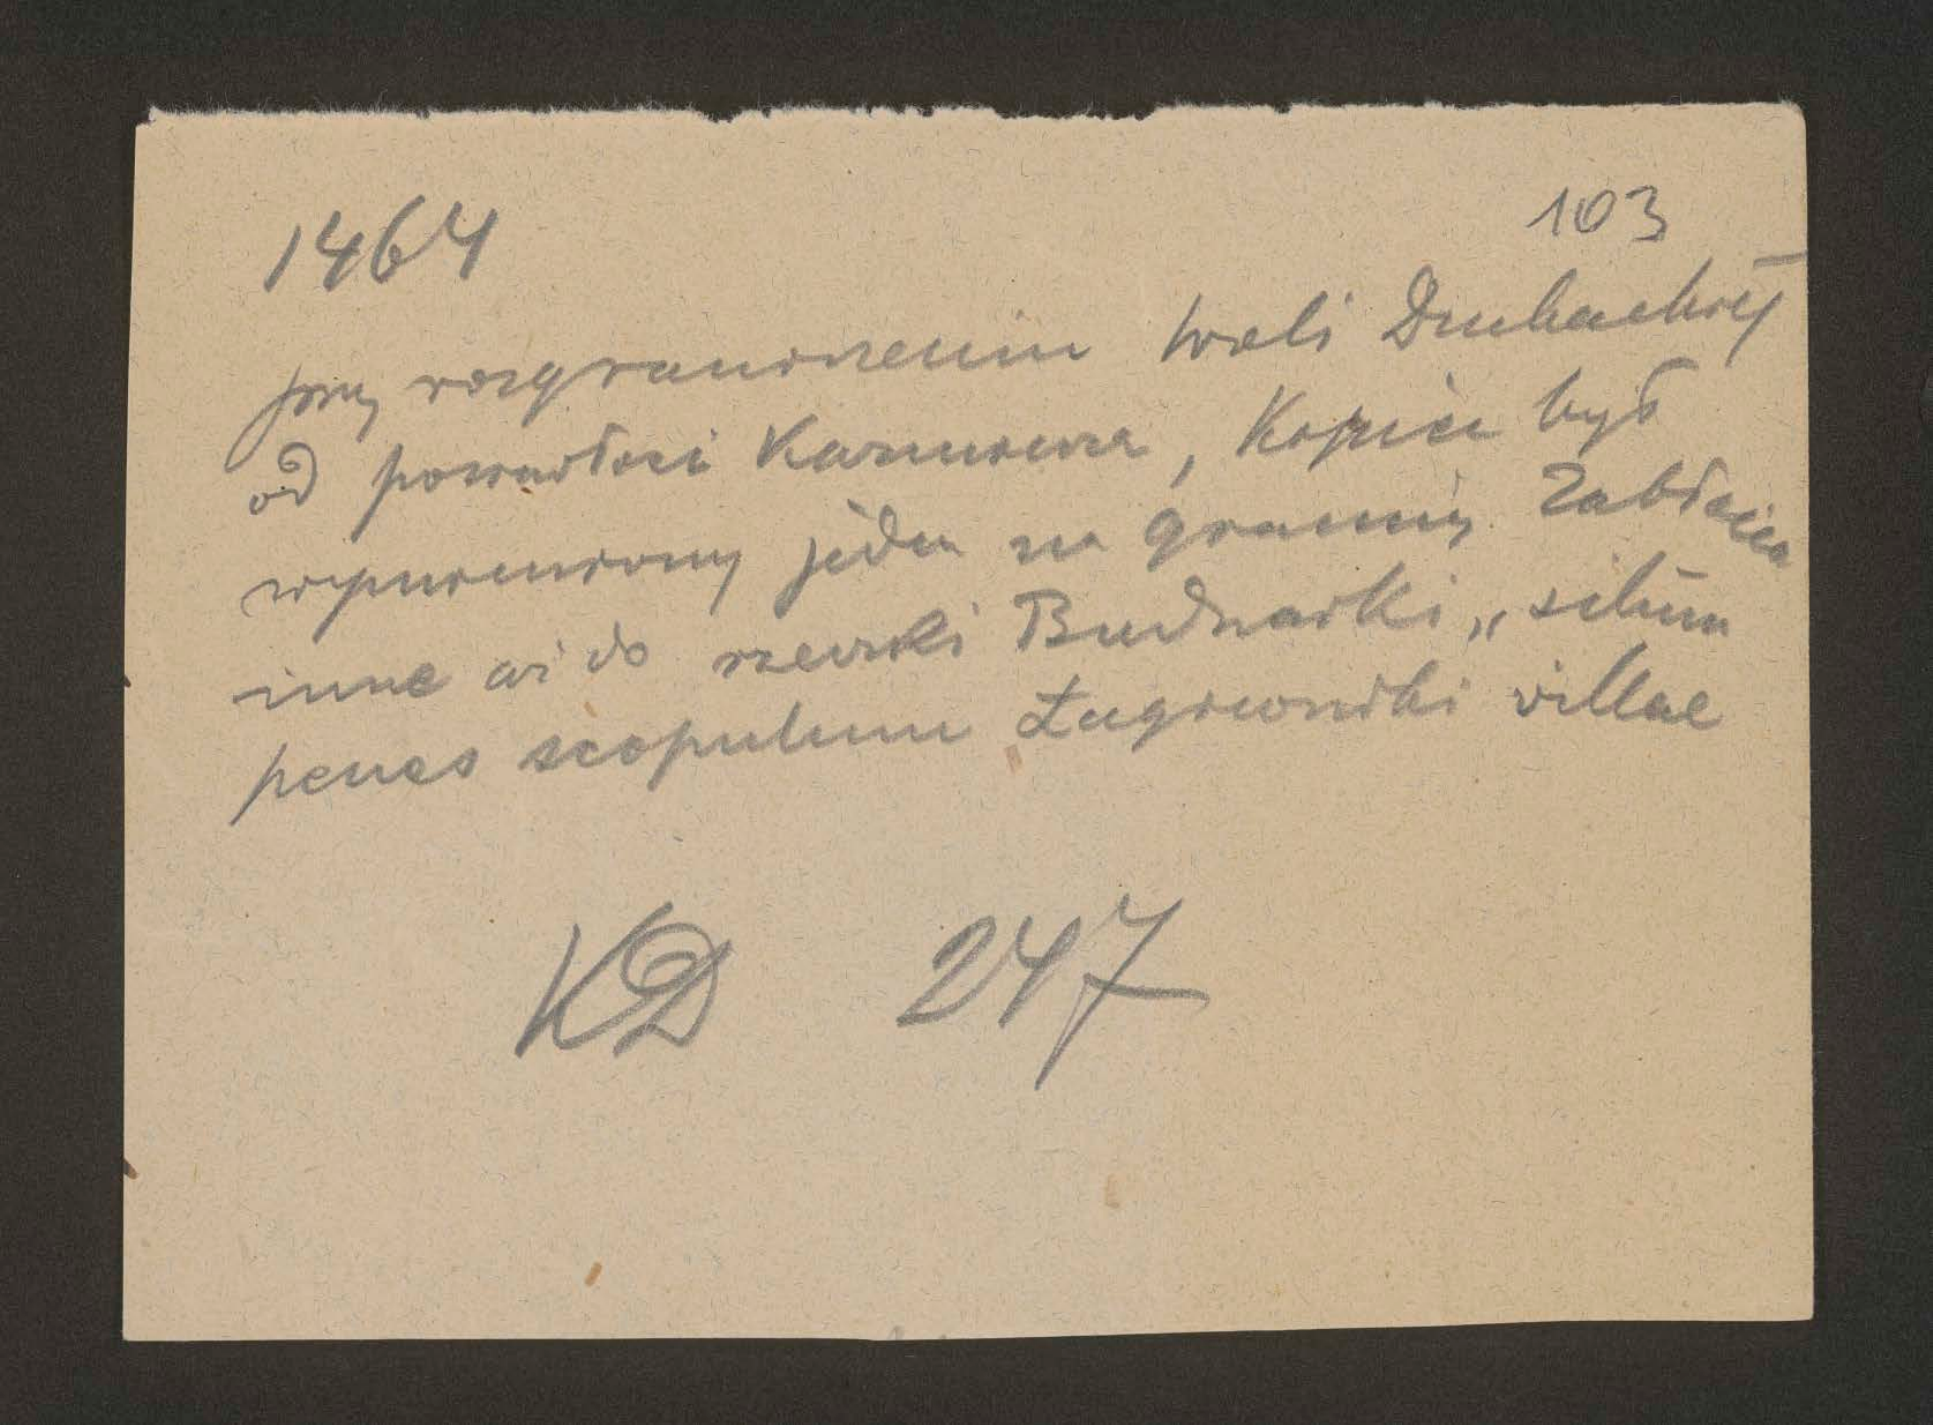 1464
103
przy rozgraniczeniu Woli Duchackiej
od posiadłości Kazimierza, Kopiec był
wymieniony jeden na granicy Zabłocia
inne aż do rzeczki Budnarki, „ situm
penes scopulum Łagiewniki villae
KD 247